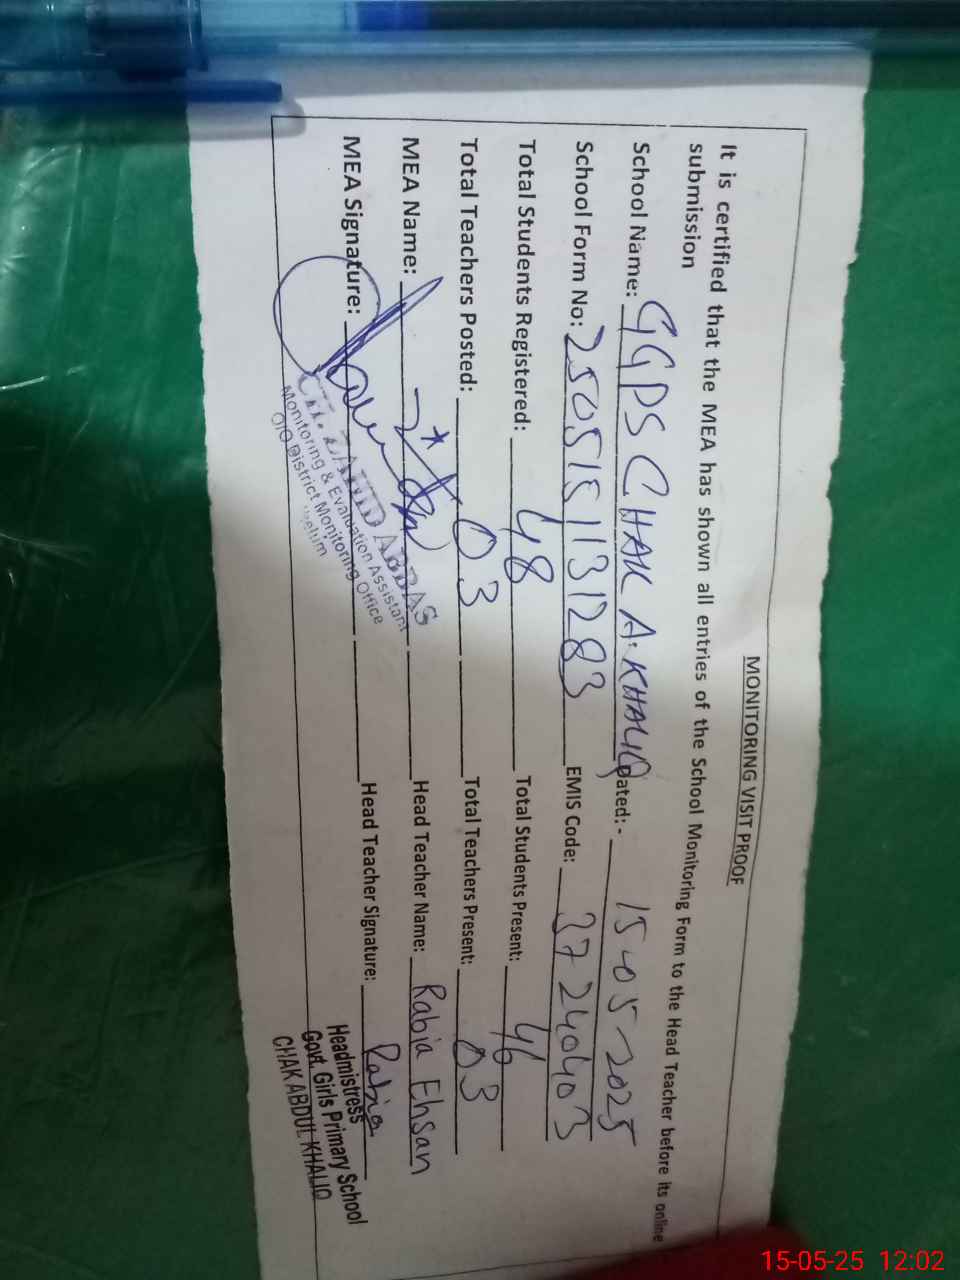 MONITORING VISIT PROOF
It is certified that the MEA has shown all entries of the School Monitoring Form to the Head Teacher before its online
submission
School Name: GGPS CHAK A. KHALIQ Dated:- 15-05-2025
School Form No: 2505151131283 EMIS Code: 37240403
Total Students Registered: 48 Total Students Present: 46
Total Teachers Posted: 03 Total Teachers Present: 03
MEA Name: Head Teacher Name: Rabia Ehsan
MEA Signature: Head Teacher Signature: Rabia
CH. ZAHID ABBAS
Monitoring & Evaluation Assistant
O/O District Monitoring Office
Jhelum
Headmistress
Govt. Girls Primary School
CHAK ABDUL KHALIQ
15-05-25 12:02